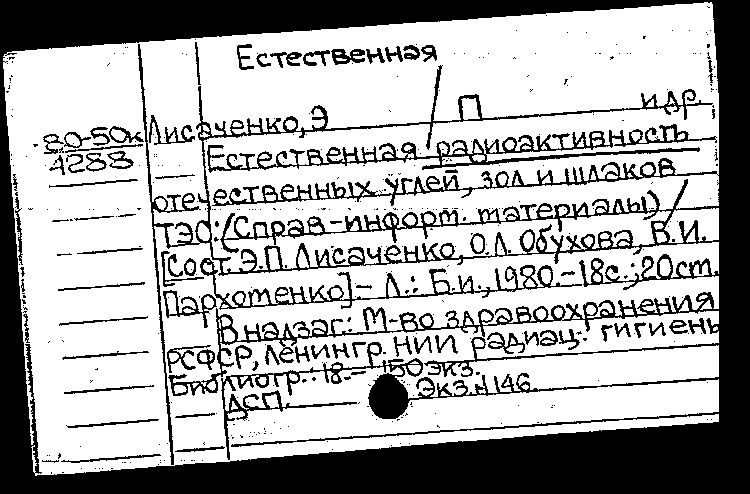 Естественная
80-50к Лисаченко, Э П и др.
4288 Естественная радиоактивность
отечественных углей, зол и шлаков
ТЭС: (Справ-информ. материалы) /
[Сост. Э.П. Лисаченко, О.Л. Обухова, В.И.
Пархотенко]. - Л.: Б.и., 1980. - 18с.; 20ст.
В надзаг.: М-во здравоохранения
РСФСР, Ленингр. НИИ радиац. гигиены
Библиогр.: 18. - 150 экз.
ДСП. Экз. N 146.